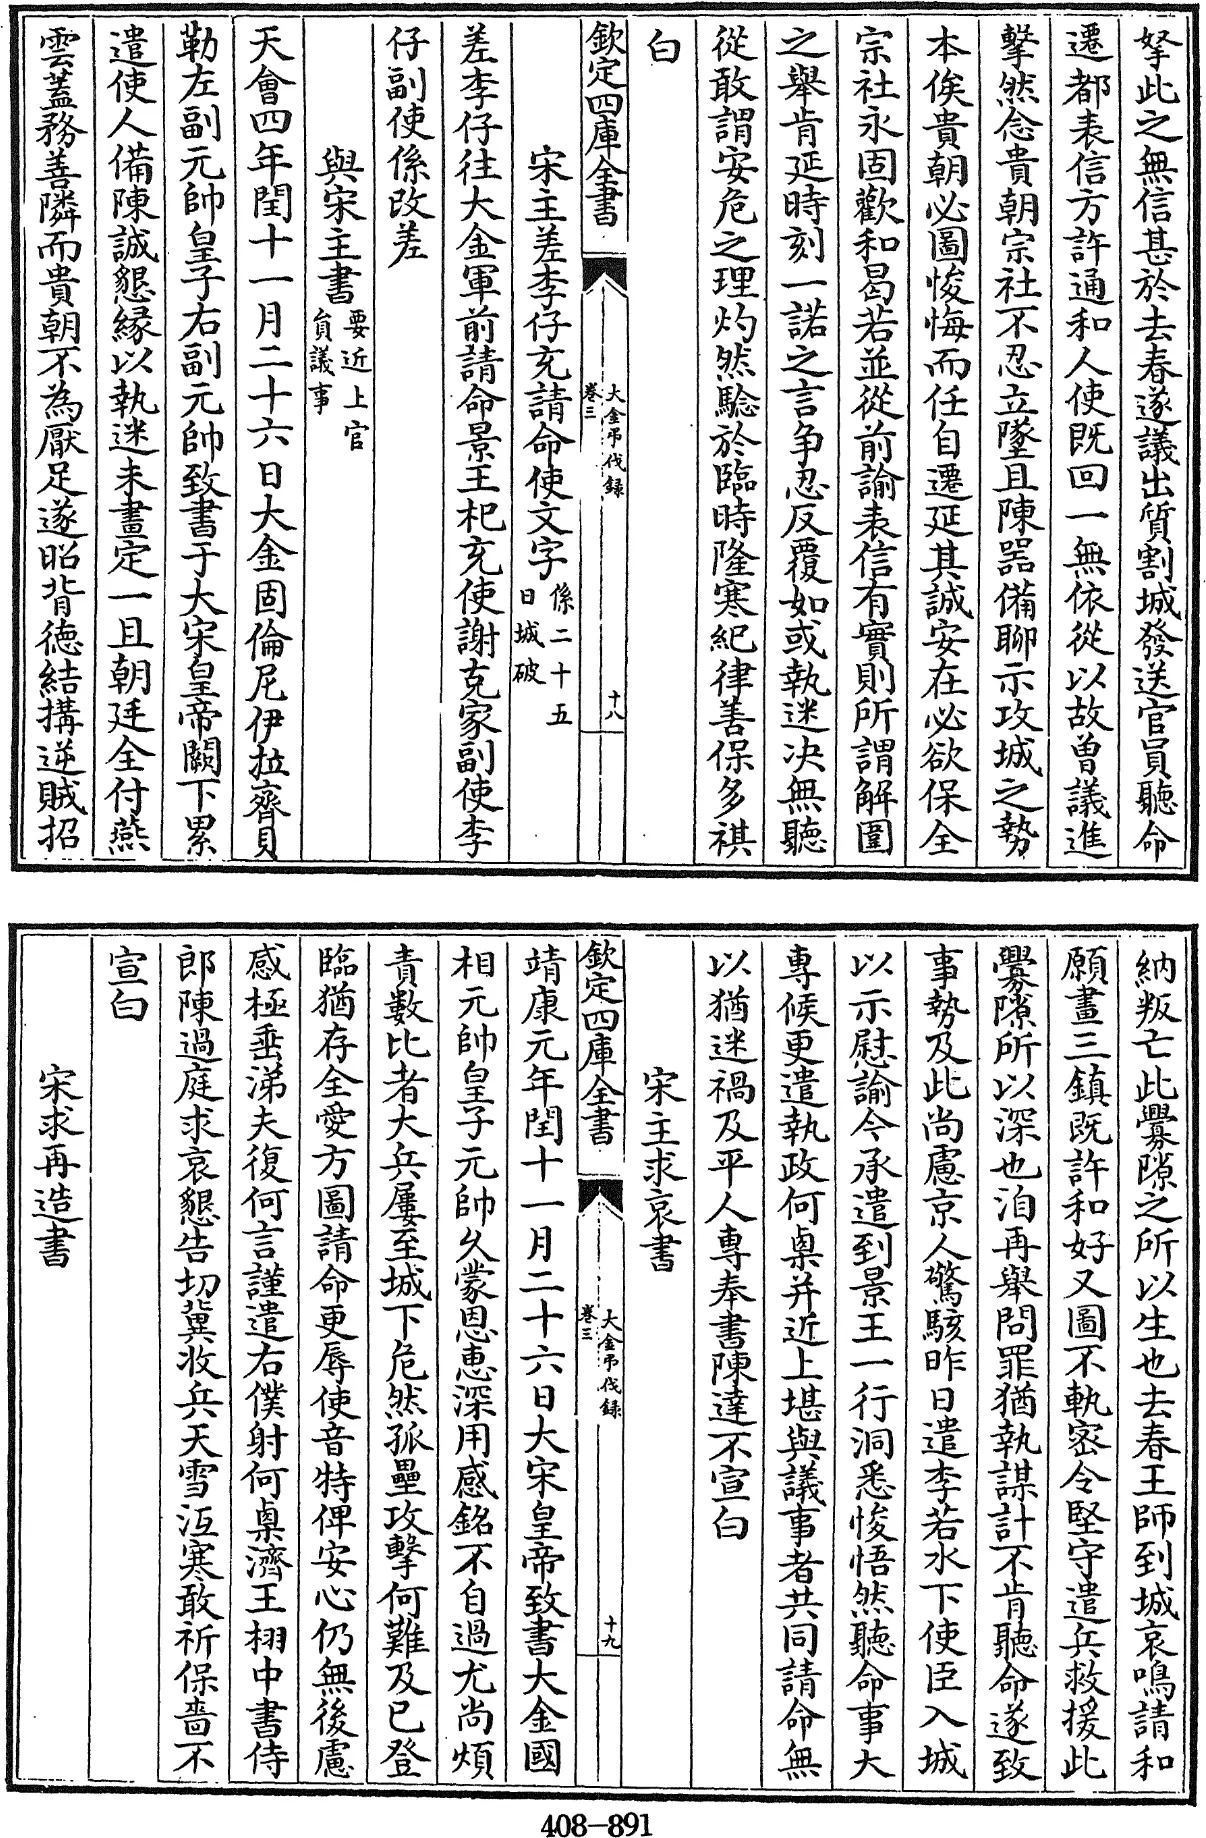 孥此之無信甚於去春遂議出質割城發送官員聽命
遷都表信方許通和人使既回一無依從以故曾議進
擊然念貴朝宗社不忍立墜且陳器備聊示攻城之勢
本俟貴朝必圖悛悔而任自遷延其誠安在必欲保全
宗社永固歡和曷若並從前諭表信有實則所謂解圍
之舉肯延時刻一諾之言争忍反覆如或執迷决無聽
從敢謂安危之理灼然驗於臨時隆寒紀律善保多祺
白
欽定四庫全書
大金弔伐録
卷三
十八
宋主差李仔充請命使文字係二十五日城破
差李仔往大金軍前請命景王杞充使謝克家副使李
仔副使係改差
與宋主書要近上官員議事
天會四年閏十一月二十六日大金固倫尼伊拉齊貝
勒左副元帥皇子右副元帥致書于大宋皇帝闕下累
遣使人備陳誠懇緣以執迷未畫定一且朝廷全付燕
雲蓋務善隣而貴朝不為厭足遂昭背德結搆逆賊招
納叛亡此釁隙之所以生也去春王師到城哀鳴請和
願畫三鎮既許和好又圖不軌密令堅守遣兵救援此
釁隙所以深也洎再舉問罪猶執謀計不肯聽命遂致
事勢及此尚慮京人驚駭昨日遣李若水下使臣入城
以示慰諭今承遣到景王一行洞悉悛悟然聽命事大
專候更遣執政何㮚并近上堪與議事者共同請命無
以猶迷禍及平人專奉書陳達不宣白
宋主求哀書
欽定四庫全書
大金弔伐録
卷三
十九
靖康元年閏十一月二十六日大宋皇帝致書大金國
相元帥皇子元帥乆蒙恩恵深用感銘不自過尤尚煩
責數比者大兵屢至城下危然孤壘攻擊何難及已登
臨猶存全愛方圖請命更辱使音特俾安心仍無後慮
感極垂涕夫復何言謹遣右僕射何㮚濟王栩中書侍
郎陳過庭求哀懇告切冀收兵天雪沍寒敢祈保嗇不
宣白
宋求再造書
408-891